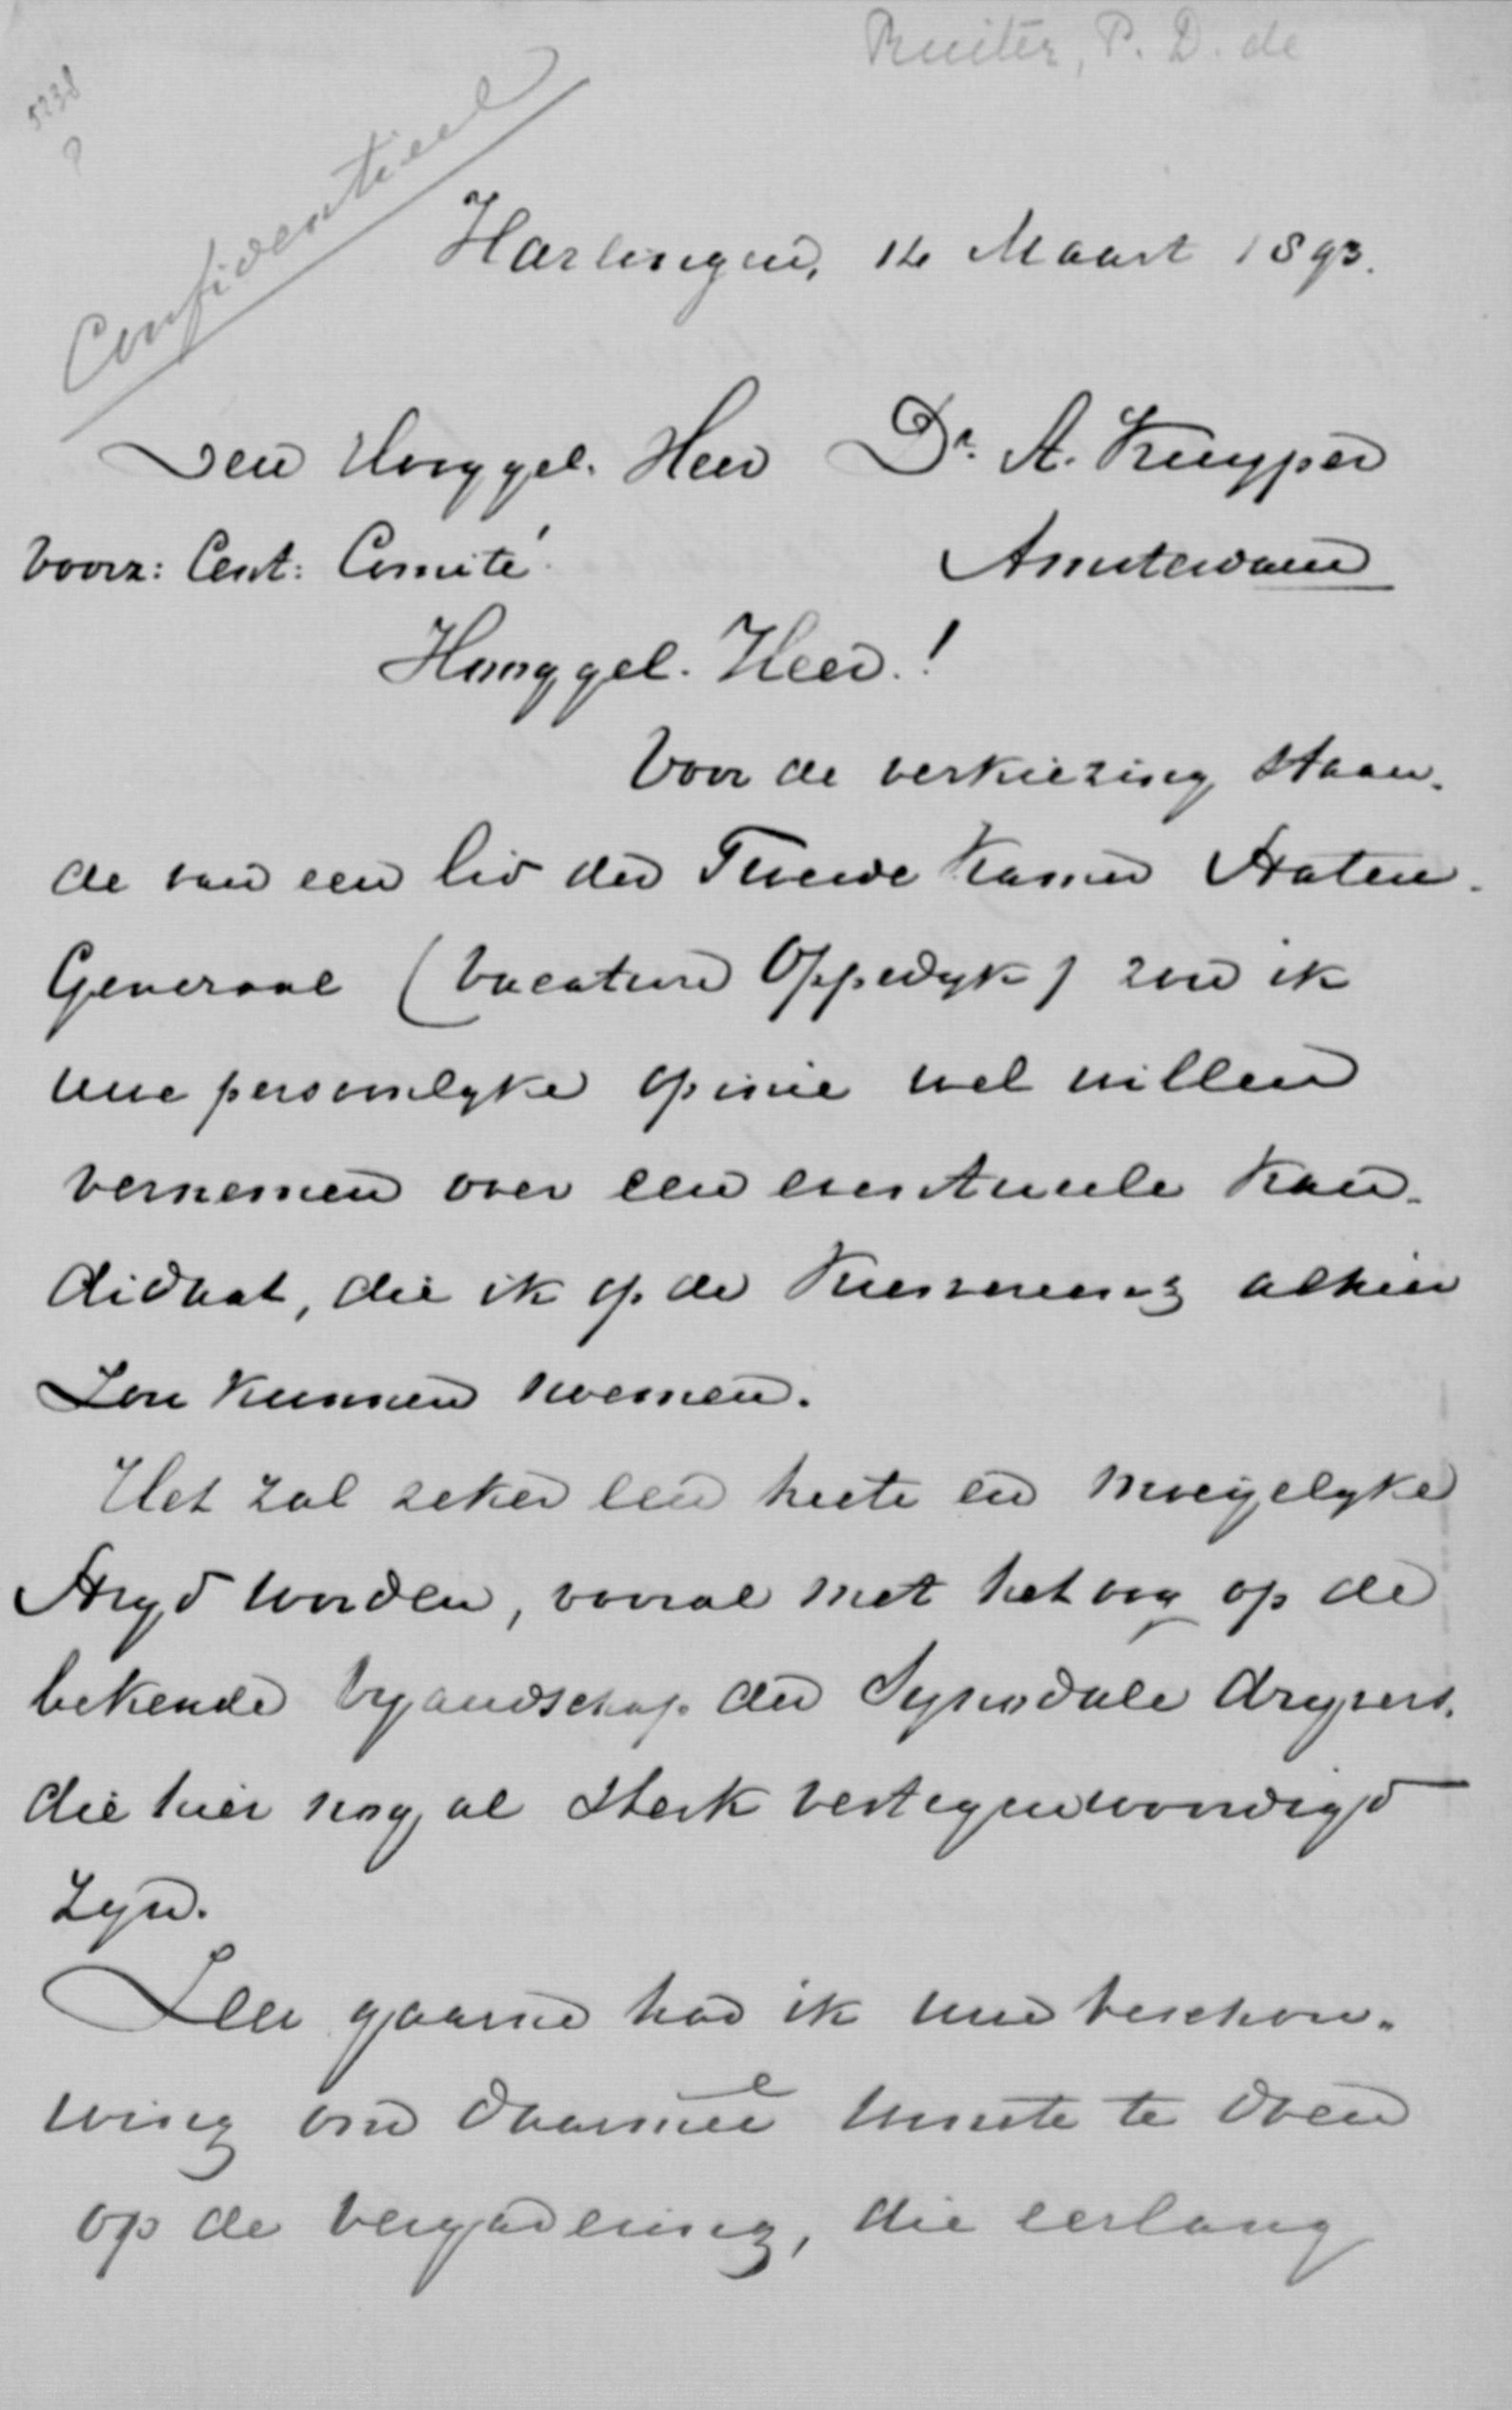 Ruiter, P. D. de
5238
Confidentieel
Harlingen, 14 Maart 1893.
Den Hooggel. Heer Dr. A. Kuyper
Voorz: Cent: Comité.
Amsterdam
Hooggel. Heer.!
Voor de verkiezing staan-
de van een lid der Tweede Kamer Staten-
Generaal (vacature Oppedyk) zou ik
uwe persoonlyke opinie wel willen
vernemen over een eventueele kan-
didaat, die ik op de Kiesvereenig alhier
zou kunnen noemen.
Het zal zeker een heete en moeyelyke
stryd worden, vooral met het oog op de
bekende vyandschap der Synodale dryvers.
die hier nog al sterk vertegenwoordigd
zyn.
Zeer gaarne had ik uwe beschou-
wing om daarmeê winste te doen
op de vergadering, die eerlang